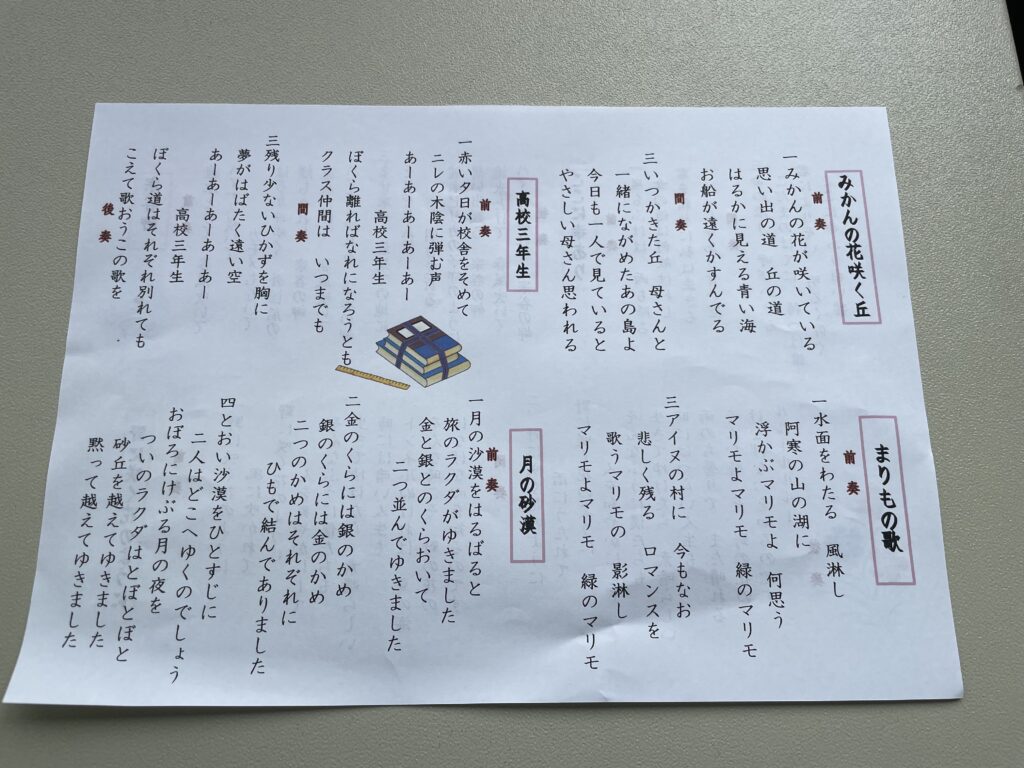 みかんの花咲く丘
前奏
一みかんの花が咲いている
思い出の道　丘の道
はるかに見える青い海
お船が遠くかすんでる
間奏
三いつかきた丘　母さんと
一緒にながめたあの島よ
今日も一人で見ていると
やさしい母さん思われる
高校三年生
前奏
一赤い夕日が校舎をそめて
ニレの木陰に弾む声
あーあーあーあーあー
高校三年生
ぼくら離ればなれになろうとも
クラス仲間は　いつまでも
間奏
三残り少ないひかずを胸に
夢がはばたく遠い空
あーあーあーあーあー
高校三年生
ぼくら道はそれぞれ別れても
こえて歌おうこの歌を
後奏
まりもの歌
前奏
一水面をわたる　風淋し
阿寒の山の湖に
浮かぶマリモよ　何思う
マリモよマリモ　緑のマリモ
三アイヌの村に　今もなお
悲しく残る　ロマンスを
歌うマリモの　影淋し
マリモよマリモ　緑のマリモ
月の砂漠
前奏
一月の沙漠をはるばると
旅のラクダがゆきました
金と銀とのくらおいて
二つ並んでゆきました
二金のくらには銀のかめ
銀のくらには金のかめ
二つのかめはそれぞれに
ひもで結んでありました
四とおい沙漠をひとすじに
二人はどこへゆくのでしょう
おぼろにけぶる月の夜を
ついのラクダはとぼとぼと
砂丘を越えてゆきました
黙って越えてゆきました